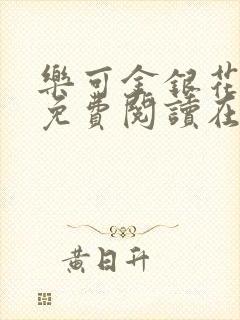 樂可金銀花
免費閱讀在
黃日升